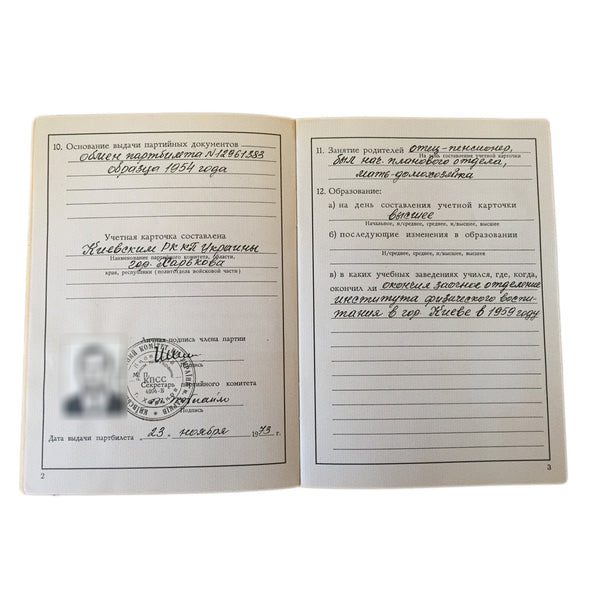 10. Основание выдачи партийных документов
обмен партбилета N 12961383
образца 1954 года
Учетная карточка составлена
Киевским РК КП Украины
Наименование партийного комитета, области,
гор. Харькова
края, республики (политотдела войсковой части)
Личная подпись члена партии
Подпись
М. П.
КПСС
Секретарь партийного комитета
Подпись
Дата выдачи партбилета 23. ноября 1973 г.
2
11. Занятие родителей отец-пенсионер,
На день составления учетной карточки
был нач. планового отдела,
мать-домохозяйка
12. Образование:
а) на день составления учетной карточки
высшее
Начальное, н/среднее, среднее, н/высшее, высшее
б) последующие изменения в образовании
Н/среднее, среднее, н/высшее, высшее
в) в каких учебных заведениях учился, где, когда,
окончил ли окончил заочное отделение
института физического воспи-
тания в гор. Киеве в 1959 году
3